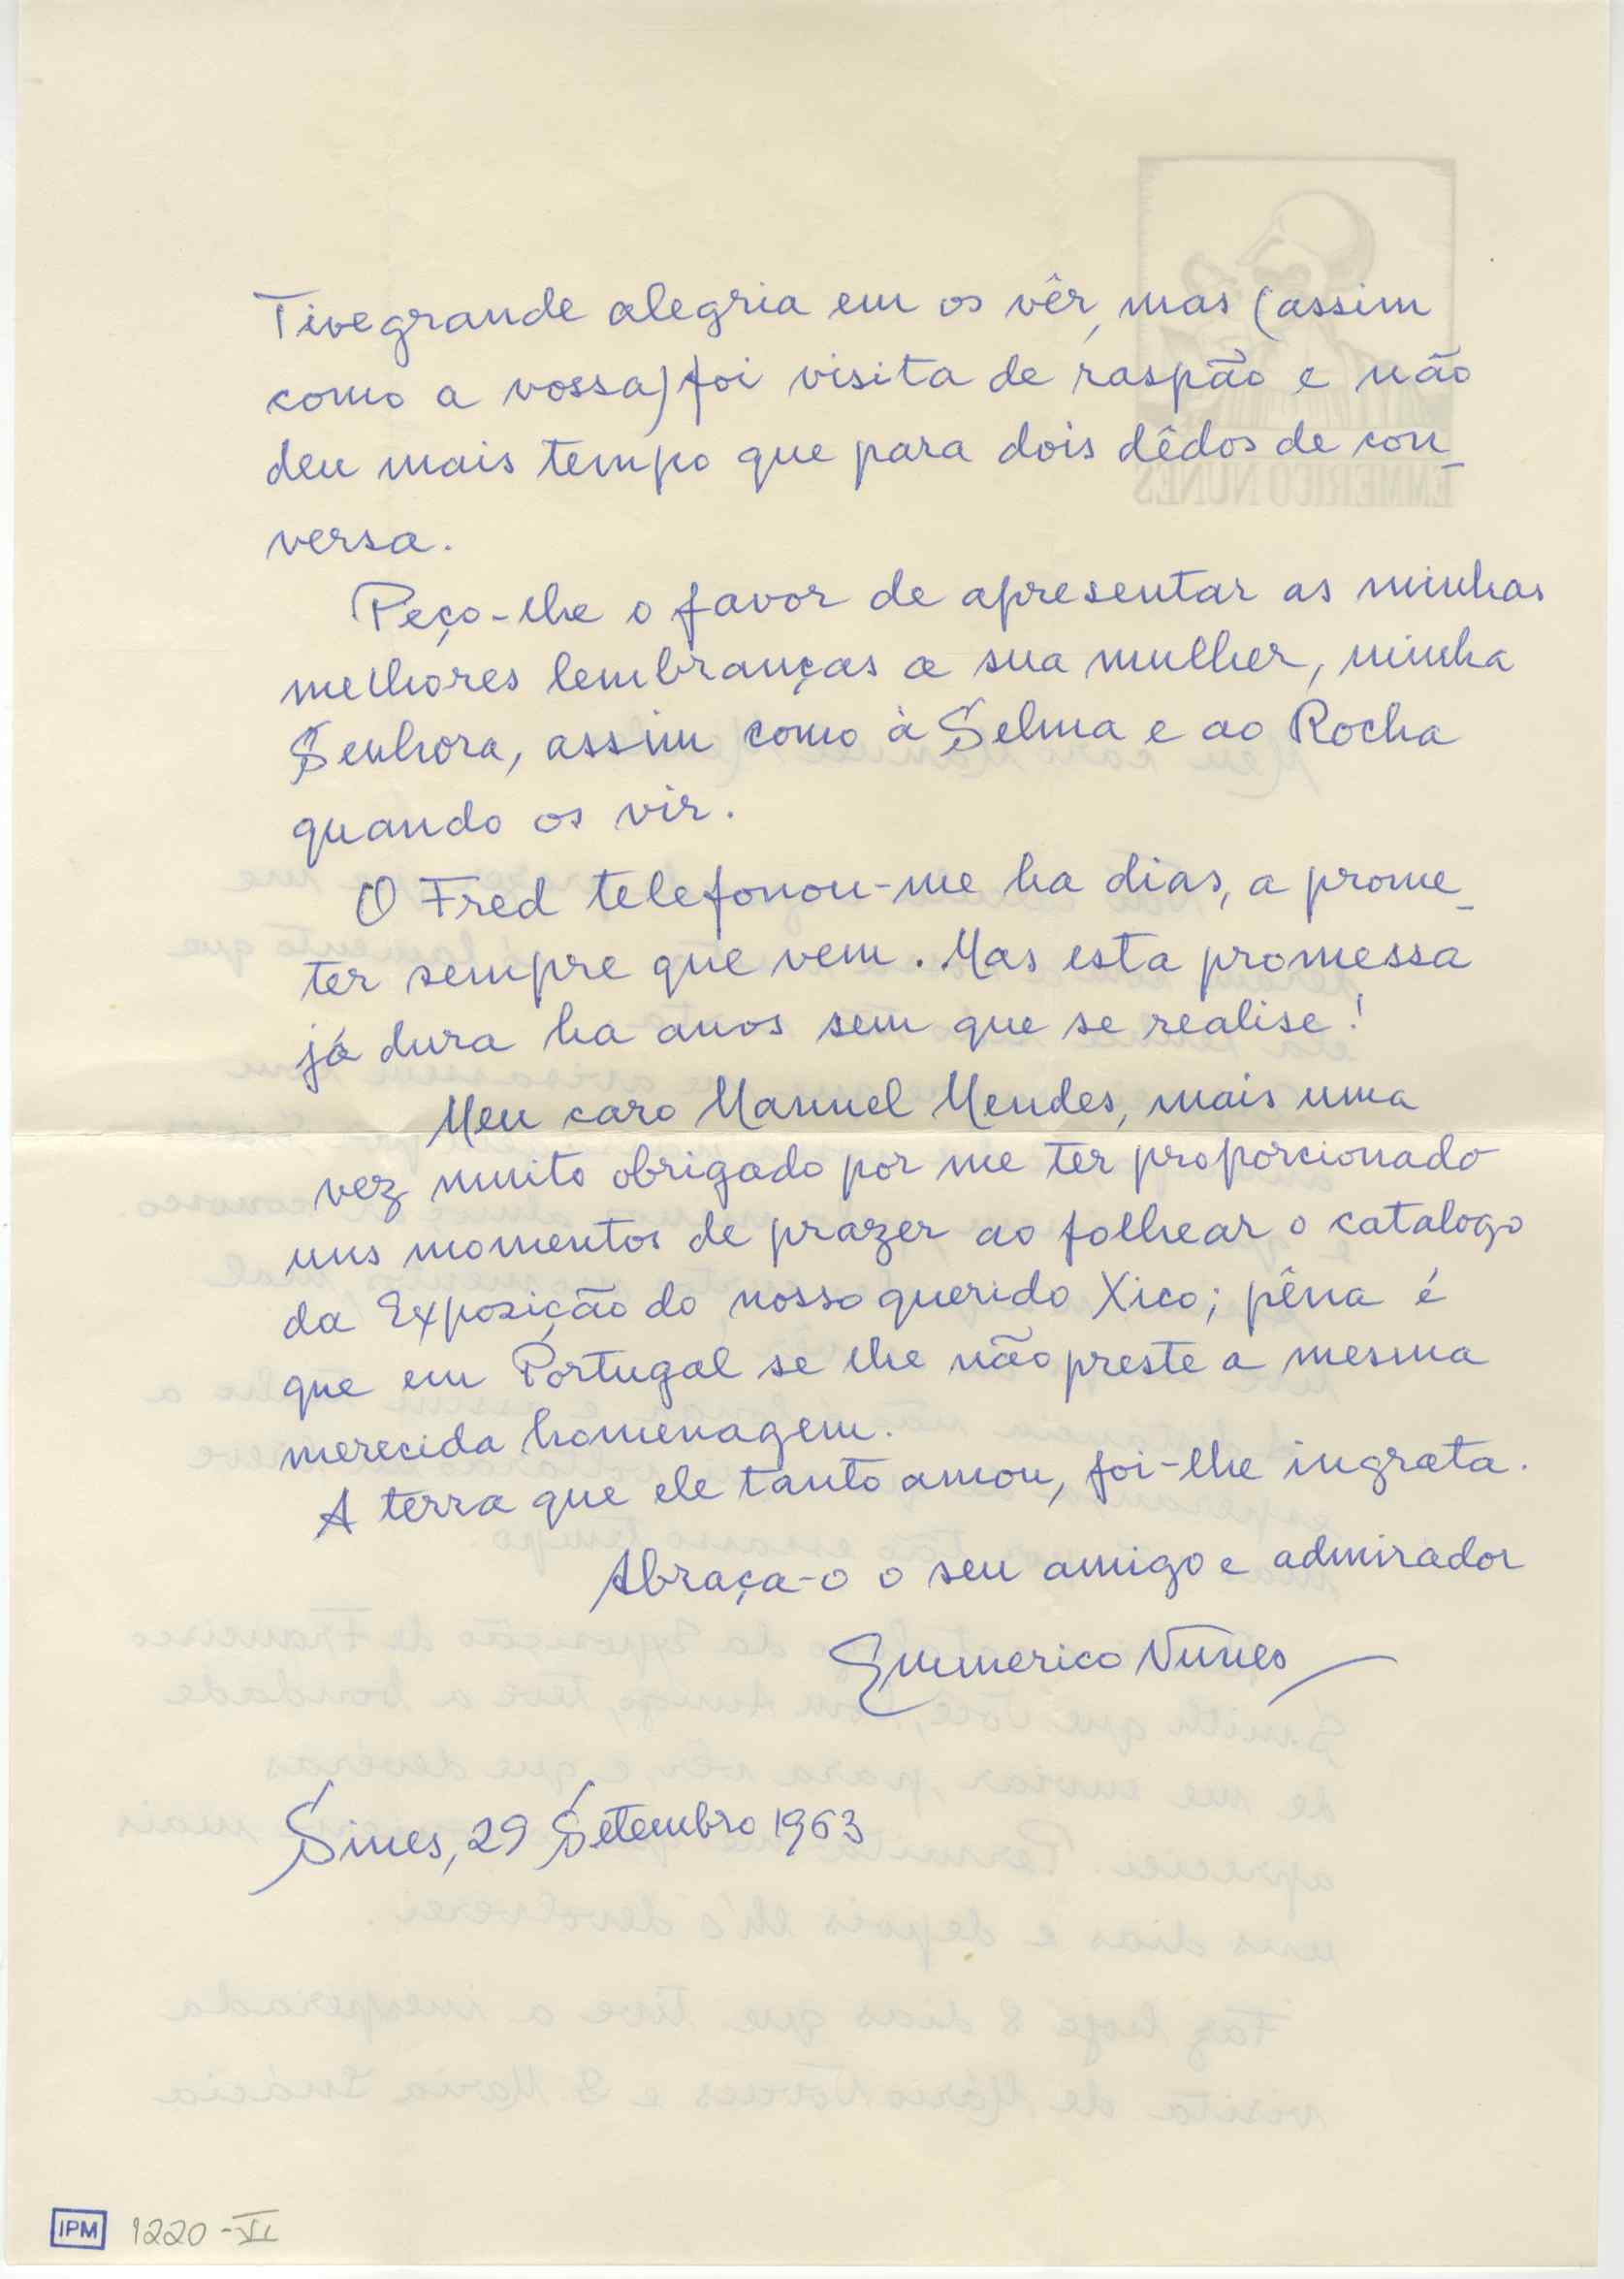 Tive grande alegria em os vêr, mas (assim
como a vossa) foi visita de raspão e não
deu mais tempo que para dois dêdos de con_
versa.
Peço-lhe o favor de apresentar as minhas
melhores lembranças a sua mulher, minha
Senhora, assim como à Selma e ao Rocha
quando os vir.
O Fred telefonou-me ha dias, a prome_
ter sempre que vem. Mas esta promessa
já dura ha anos sem que se realise!
Meu caro Manuel Mendes, mais uma
vez muito obrigado por me ter proporcionado
uns momentos de prazer ao folhear o catalogo
da Exposição do nosso querido Xico; pêna é
que em Portugal se lhe não preste a mesma
merecida homenagem.
A terra que ele tanto amou, foi-lhe ingrata.
Abraça-o o seu amigo e admirador
Emmerico Nunes
Sines, 29 Setembro 1963
IPM 1220-VI
EMMERICO NUNES